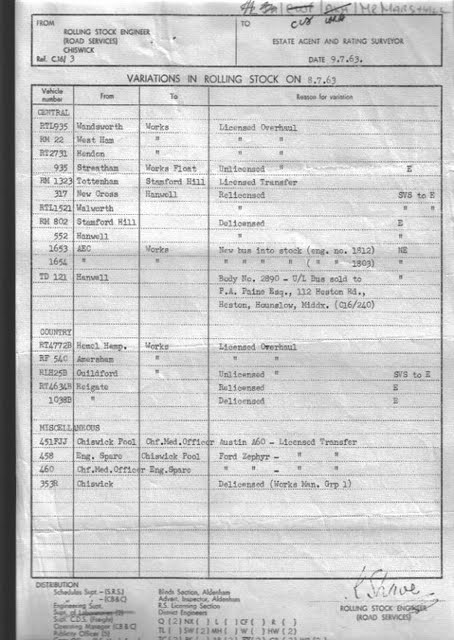 Mr MARSHALL
FROM
ROLLING STOCK ENGINEER
(ROAD SERVICES)
CHISWICK
Ref. C.16/ 3
TO
ESTATE AGENT AND RATING SURVEYOR
DATE 9.7.63.
VARIATIONS IN ROLLING STOCK ON 8.7.63
Vehicle number From To Reason for variation
CENTRAL
RTL935 Wandsworth Works Licensed Overhaul
RM 22 West Ham " " "
RT2731 Hendon " " "
935 Streatham Works Float Unlicensed " E
RM 1323 Tottenham Stamford Hill Licensed Transfer
317 New Cross Hanwell Relicensed SVS to E
RTL1521 Walworth " "
RM 802 Stamford Hill Delicensed E
552 Hanwell " "
1653 AEC Works New bus into stock (eng. no. 1812) NE
1654 " " " " " " ( " " 1803) "
TD 121 Hanwell Body No. 2890 - U/L Bus sold to "
F.A. Paine Esq., 112 Heston Rd.,
Heston, Hounslow, Middx. (C16/240)
COUNTRY
RT4772B Hemel Hemp. Works Licensed Overhaul
RF 540 Amersham " " "
RLH25B Guildford " Unlicensed " SVS to E
RT4634B Reigate Relicensed E
1038B " Delicensed E
MISCELLANEOUS
451FJJ Chiswick Pool Chf.Med.Officer Austin A60 - Licensed Transfer
458 Eng. Spare Chiswick Pool Ford Zephyr - " "
460 Chf.Med.Officer Eng.Spare " " - " "
353R Chiswick Delicensed (Works Man. Grp 1)
DISTRIBUTION
Schedules Supt. - (S.R.S.)
- (CB&C)
Engineering Supt.
Supt. of Laboratories (2)
Supt. C.D.S. (Freight)
Operating Manager (CB & C)
Publicity Officer (3)
Blinds Section, Aldenham
Advert. Inspector, Aldenham
R.S. Licensing Section
District Engineers
Q (2) NX ( ) L ( ) CF ( ) R ( )
TL ( ) SW (2) MH ( ) W ( ) HW (2)
ROLLING STOCK ENGINEER
(ROAD SERVICES)